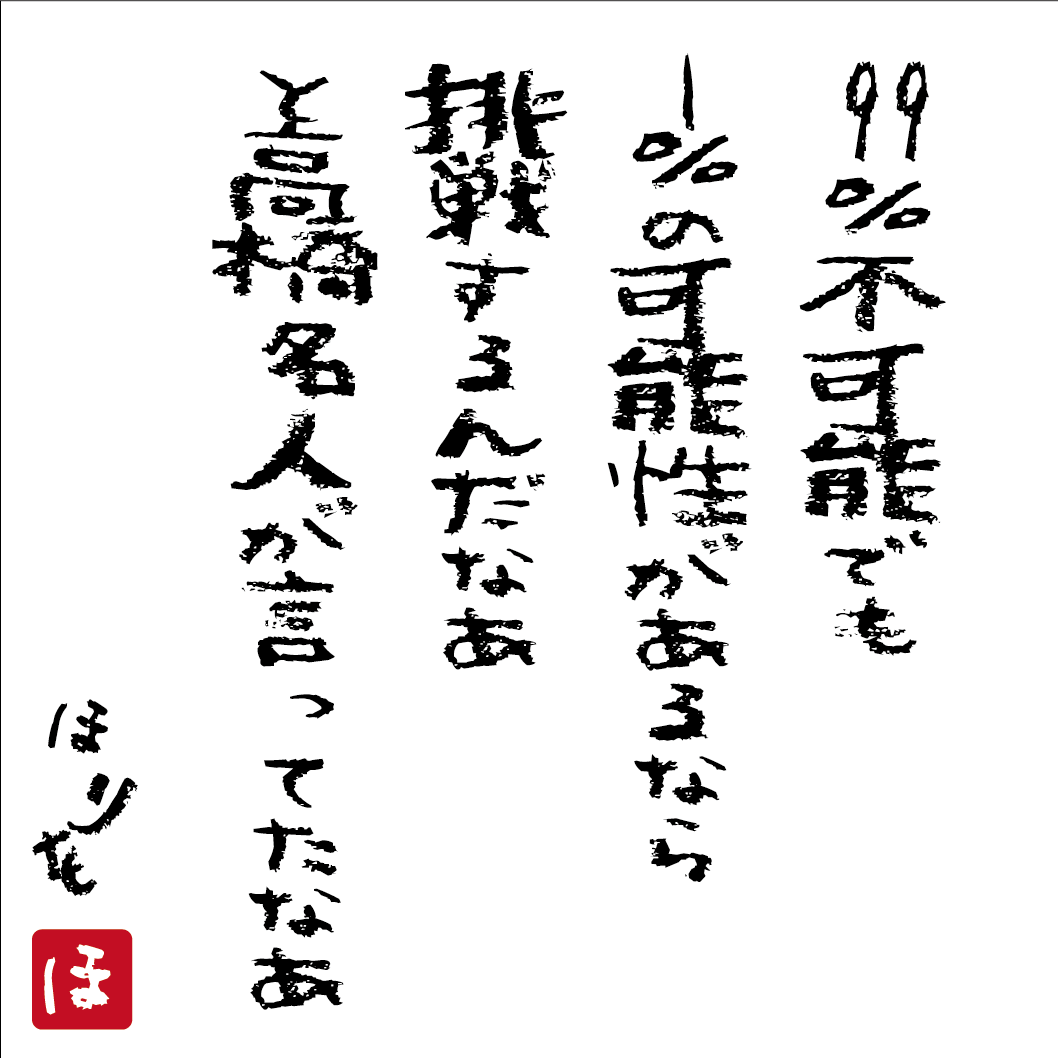 99%不可能でも
1%の可能性があるなら
挑戦するんだなあ
と高橋名人が言ってたなあ
ほりも
ほ